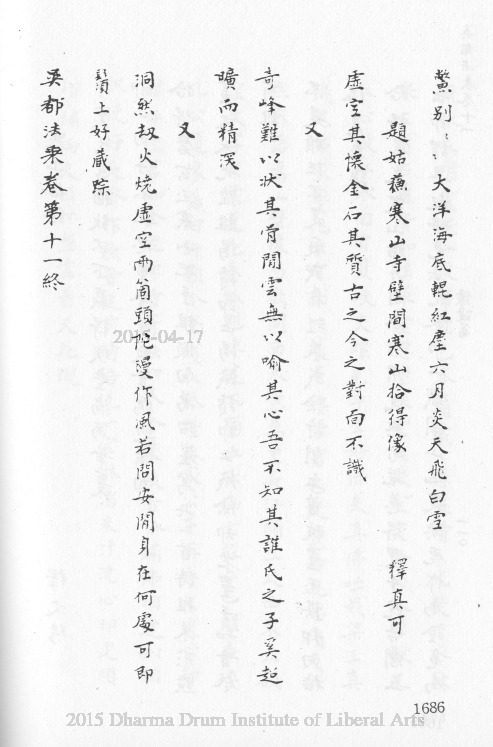 鱉別〻〻大洋海底輥紅塵六月炎天飛白雪
題姑蘓寒山寺壁間寒山拾得像 釋真可
虛空其懷金石其質古之今之對面不識
又
奇峰難以狀其骨閒雲無以喻其心吾不知其誰氏之子奚超
曠而精深
又
洞然刼火燒虛空兩箇頭陀漫作風若問安閒身在何處可即
鬚上好藏踪
吳都法乗卷第十一終
2015-04-17
1686
2015 Dharma Drum Institute of Liberal Arts